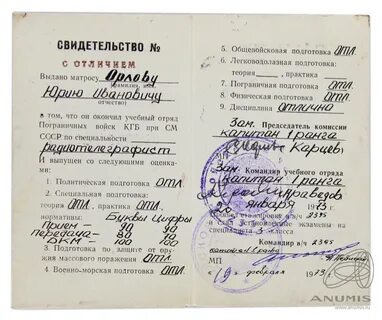 СВИДЕТЕЛЬСТВО №
С ОТЛИЧИЕМ
Выдано матросу Орлову
Юрию Ивановичу
отчество)
в том, что он окончил учебный отряд
Пограничных войск КГБ при СМ
СССР по специальности
радиотелеграфист
И выпущен со следующими оценками:
1. Политическая подготовка ОТЛ.
2. Строевая подготовка ОТЛ.
нормативы: Буквы Цифры
Прием - 90 90
Передача - 80 70
ДКМ - 100 100
3. Подготовка по защите от оружия
массового поражения ОТЛ.
4. Военно-морская подготовка ОТЛ.
5. Общевойсковая подготовка ОТЛ.
6. Легководолазная подготовка:
теория , практика
7. Практика ОТЛ.
8. Физическая подготовка ОТЛ.
9. Дисциплина отлично
Зам. Председатель комиссии
капитан 1 ранга
Карцев
Зам. Командир учебного отряда
капитан 1 ранга
января 1973
2395
3 класса
Командир в/ч 2395
капитан 1 ранга
МП
"19" февраля 1973 г.
ANUMIS